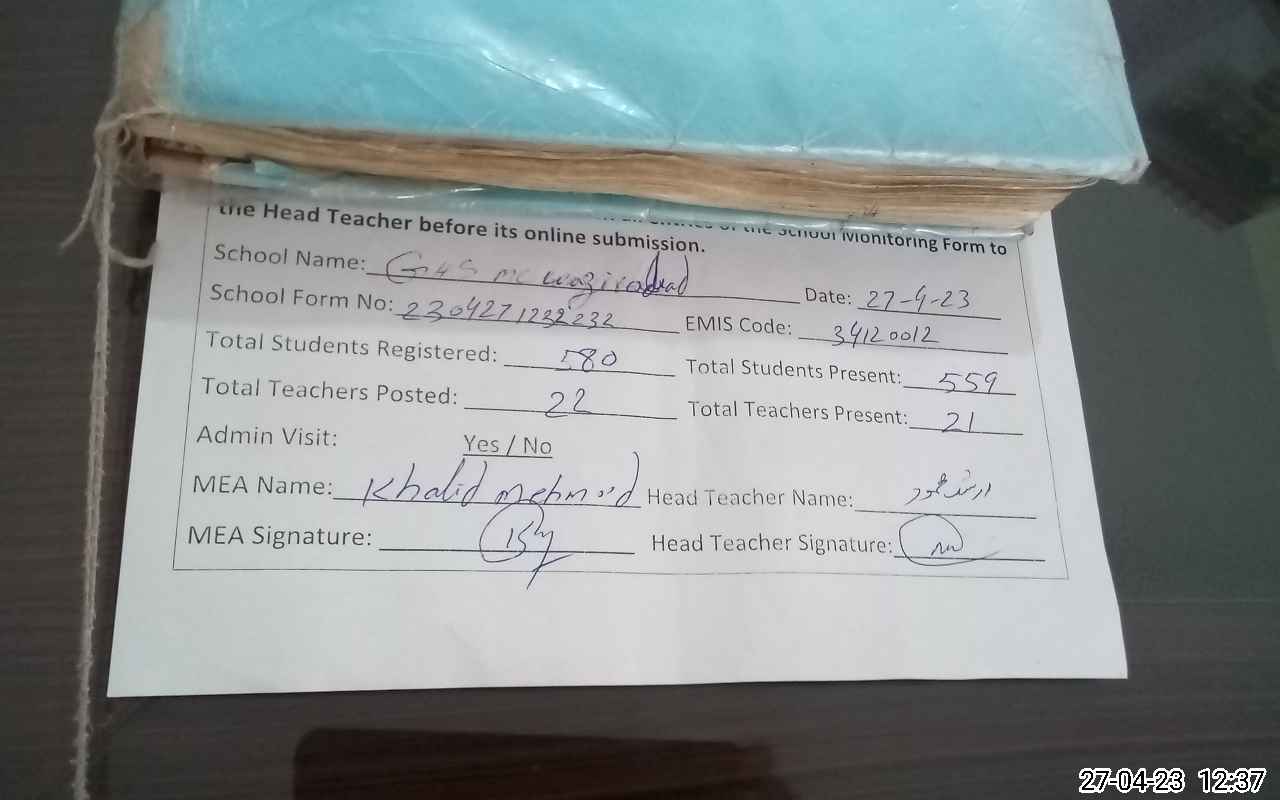 the Head Teacher before its online submission. all entries of the School Monitoring Form to
School Name: GHS MC wazirabad Date: 27-4-23
School Form No: 230427122232 EMIS Code: 34120012
Total Students Registered: 580 Total Students Present: 559
Total Teachers Posted: 22 Total Teachers Present: 21
Admin Visit: Yes / No
MEA Name: Khalid mehmood Head Teacher Name: ارشد محمود
MEA Signature: Head Teacher Signature:
27-04-23 12:37